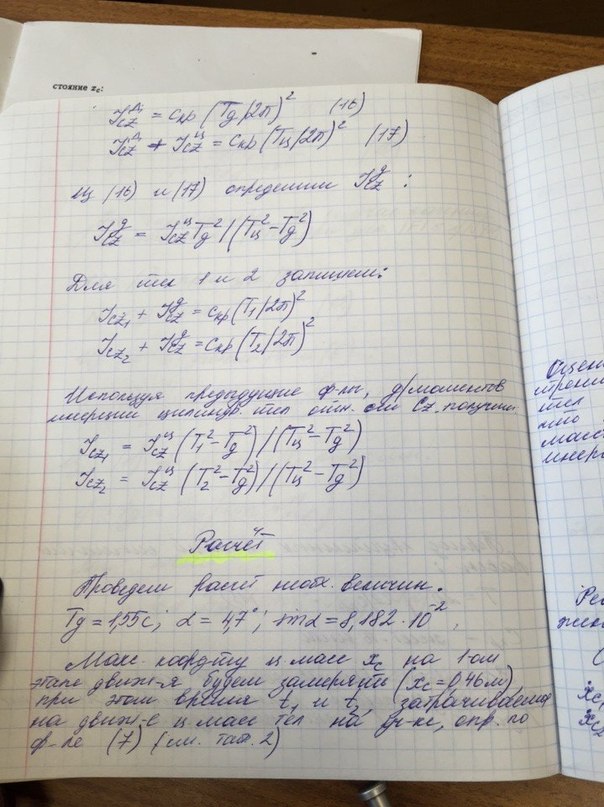 стояние zc:
J_cz^д = c_кр (Tд/2π)² (16)
J_cz^д + J_cz^ц = c_кр (Tц/2π)² (17)
Из (16) и (17) определим J_cz^д :
J_cz^д = J_cz^ц Tд² / (Tц² - Tд²)
Для тел 1 и 2 запишем:
J_cz₁ + J_cz^д = c_кр (T₁/2π)²
J_cz₂ + J_cz^д = c_кр (T₂/2π)²
Используя предыдущие ф-лы, д/моментов
инерций цилиндр. тел отн. оси Cz получим
J_cz₁ = J_cz^ц (T₁² - Tд²) / (Tц² - Tд²)
J_cz₂ = J_cz^ц (T₂² - Tд²) / (Tц² - Tд²)
Расчёт
Проведем расчет необх. величин.
Tд = 1,55с; α = 4,7°; sinα = 8,182·10⁻²,
Макс. коорд-ту ц масс xc на 1-ом
этапе движ-я будем замерять (xc = 0,46м)
при этом время t₁ и t₂, затрачиваемое
на движ-е ц масс тел на уч-ке, опр. по
ф-ле (7) (см. таб. 2)
Оцен
трени
тел
что
масс
инер
Ре
жен
xc₁
xc₂